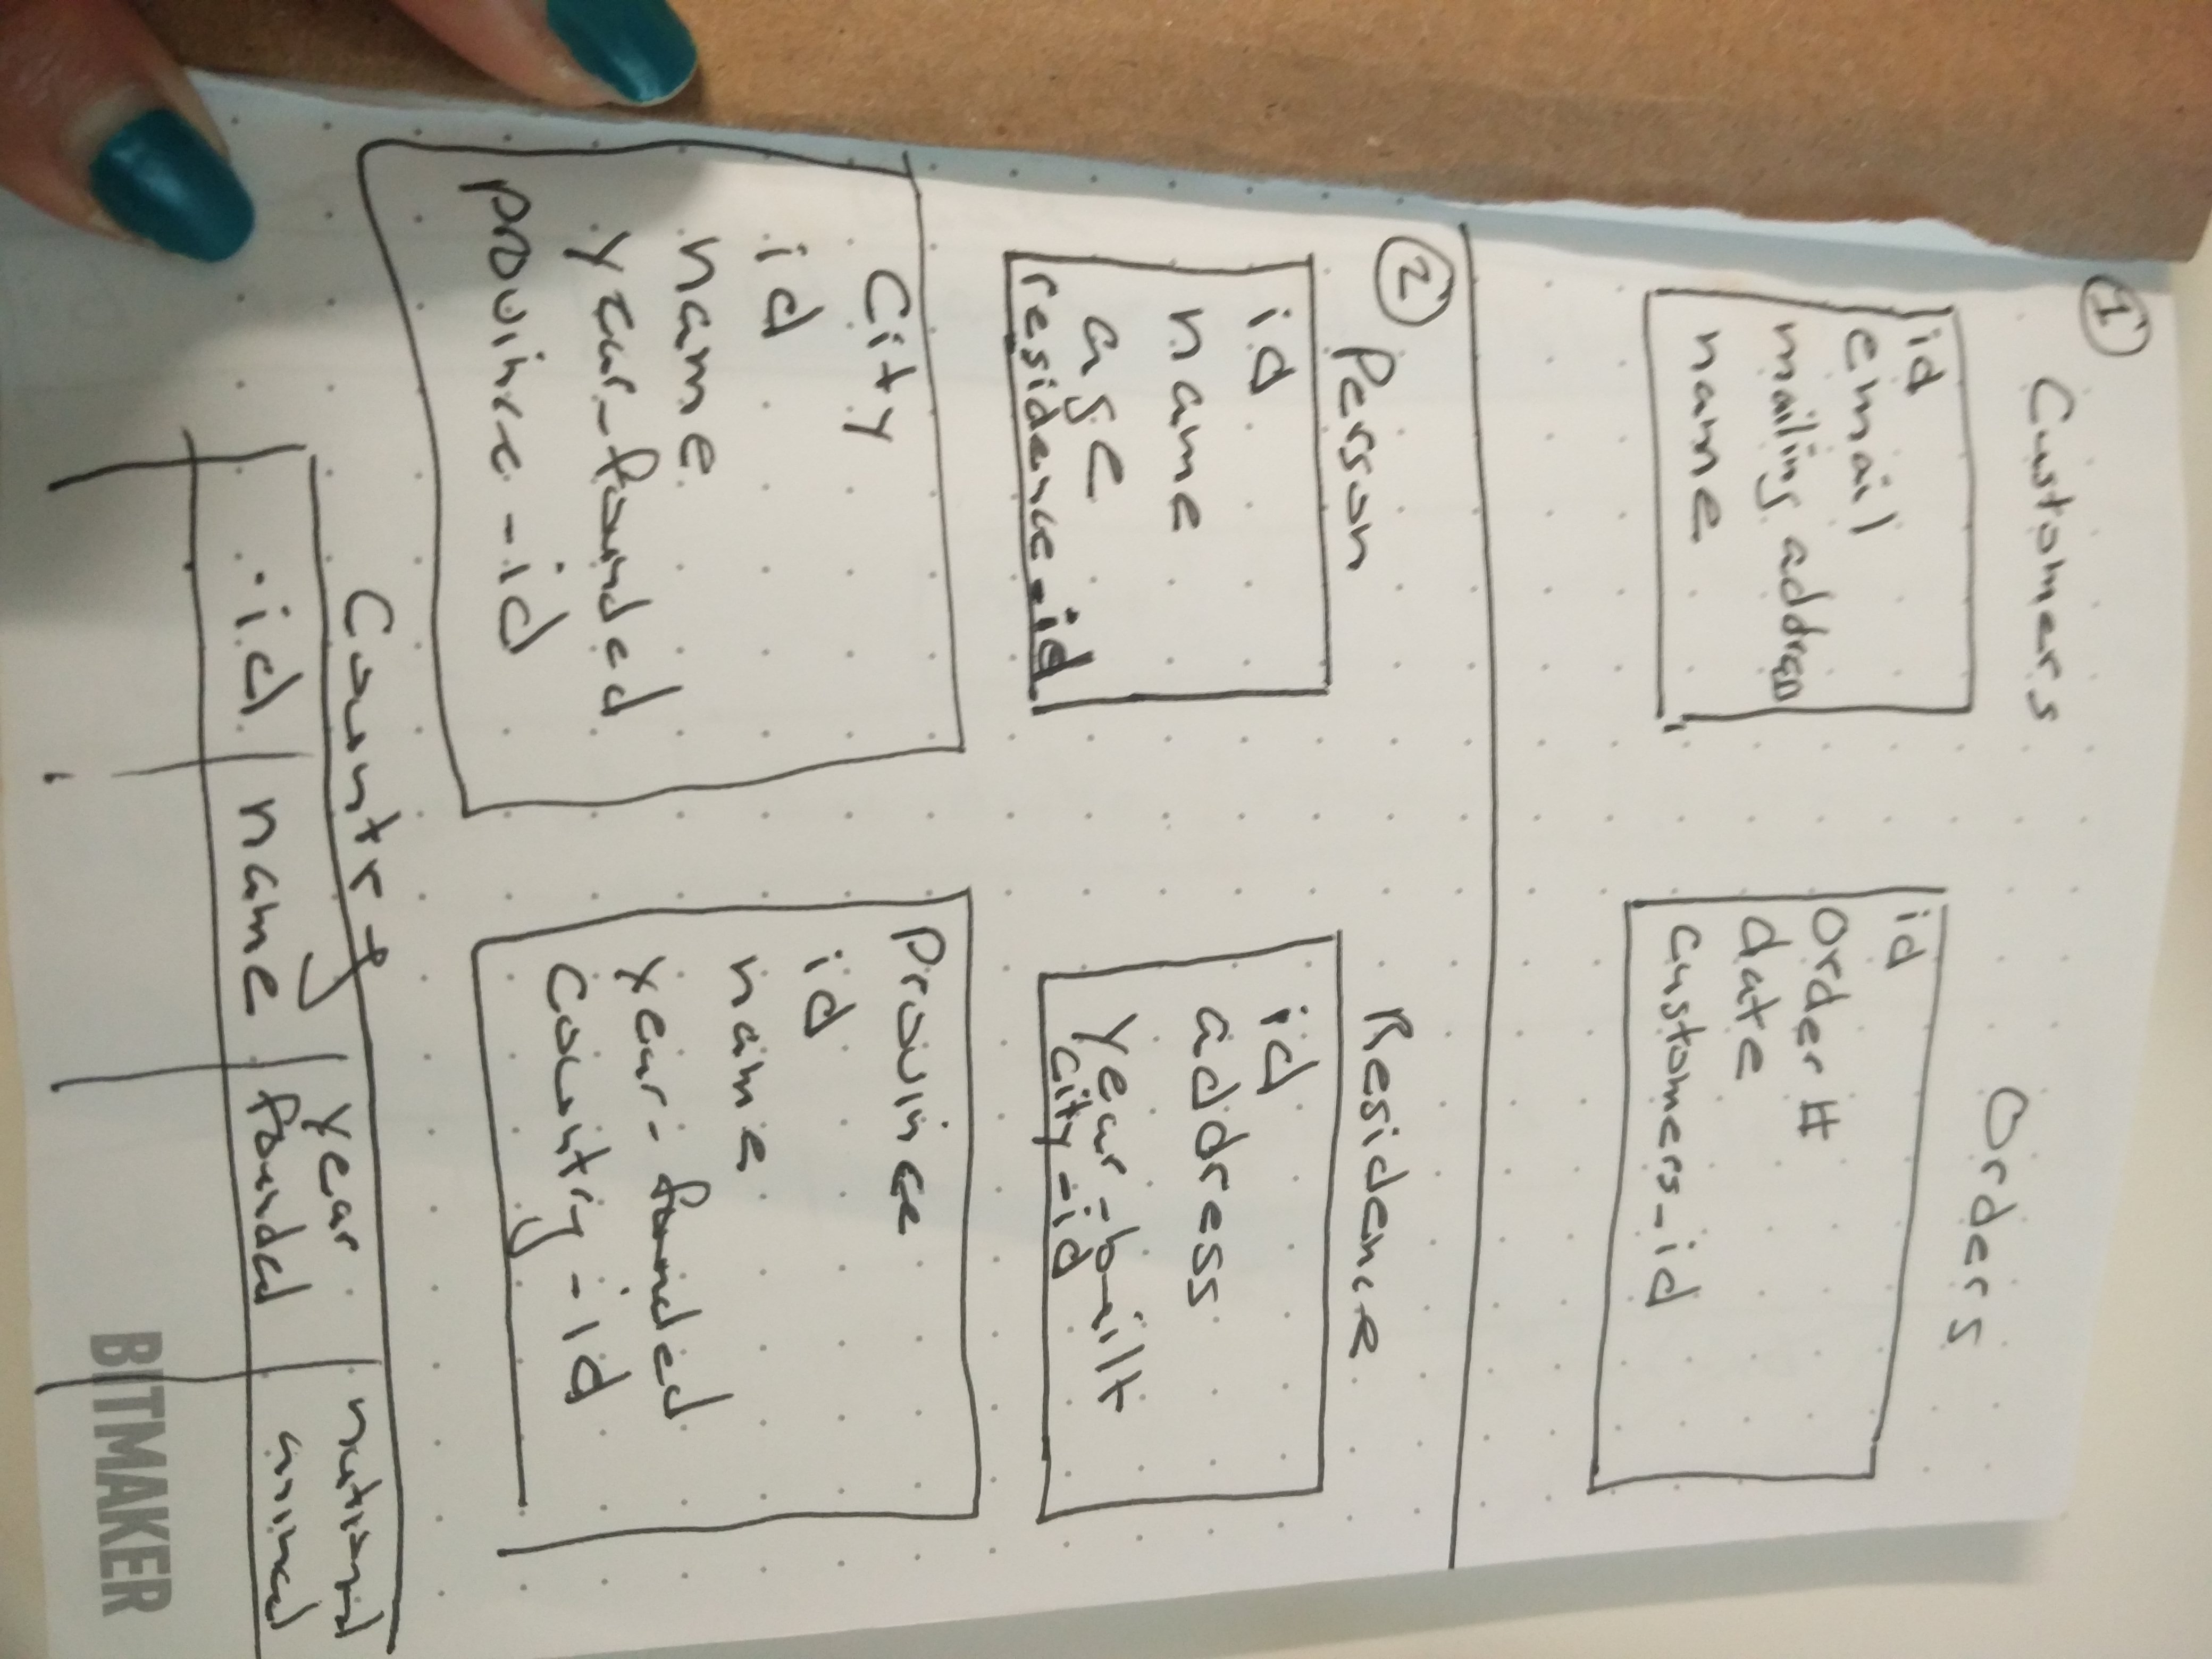 1
Customers
id
email
mailing address
name
Orders
id
Order #
date
customers-id
2
Person
id
name
age
residence-id
Residence
id
address
year-built
city-id
City
id
name
year-founded
province-id
Province
id
name
year-founded
country-id
Country
id
name
year
founded
national
animal
BITMAKER